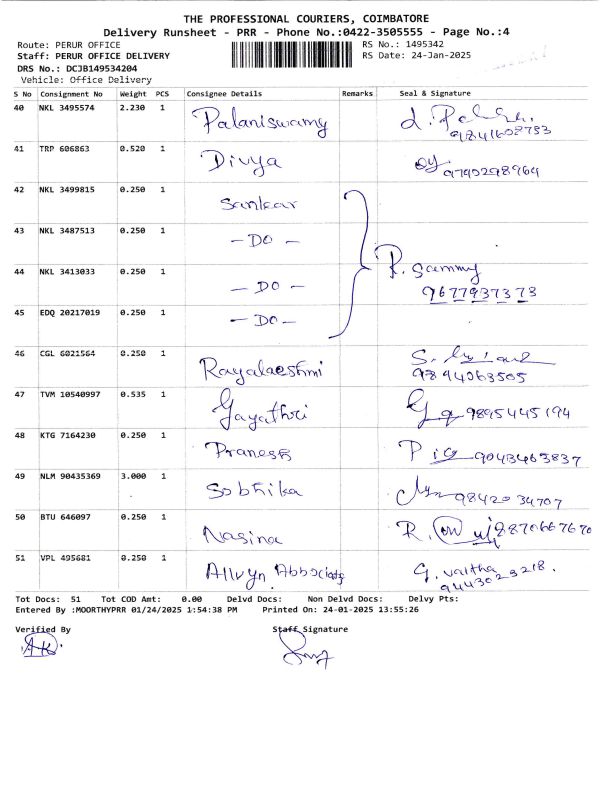 THE PROFESSIONAL COURIERS, COIMBATORE
Delivery Runsheet - PRR - Phone No.:0422-3505555 - Page No.:4
Route: PERUR OFFICE RS No.: 1495342
Staff: PERUR OFFICE DELIVERY RS Date: 24-Jan-2025
DRS No.: DCJB149534204
Vehicle: Office Delivery
S No Consignment No Weight PCS Consignee Details Remarks Seal & Signature
40 NKL 3495574 2.230 1 Palaniswamy
41 TRP 606863 0.520 1 Divya 9790298964
42 NKL 3499815 0.250 1 Sankar
43 NKL 3487513 0.250 1 - DO -
44 NKL 3413033 0.250 1 - DO - R. Sammy
9677937373
45 EDQ 20217019 0.250 1 - DO -
46 CGL 6021564 0.250 1 9894063505
47 TVM 10540997 0.535 1 Gayathri 9895445194
48 KTG 7164230 0.250 1 Pranesh 9043463837
49 NLM 90435369 3.000 1 Sobhika 9842034707
50 BTU 646097 0.250 1 Nasina 8870667670
51 VPL 495681 0.250 1 Allwyn G. valtha
9443023218.
Tot Docs: 51 Tot COD Amt: 0.00 Delvd Docs: Non Delvd Docs: Delvy Pts:
Entered By :MOORTHYPRR 01/24/2025 1:54:38 PM Printed On: 24-01-2025 13:55:26
Verified By Staff Signature
AK